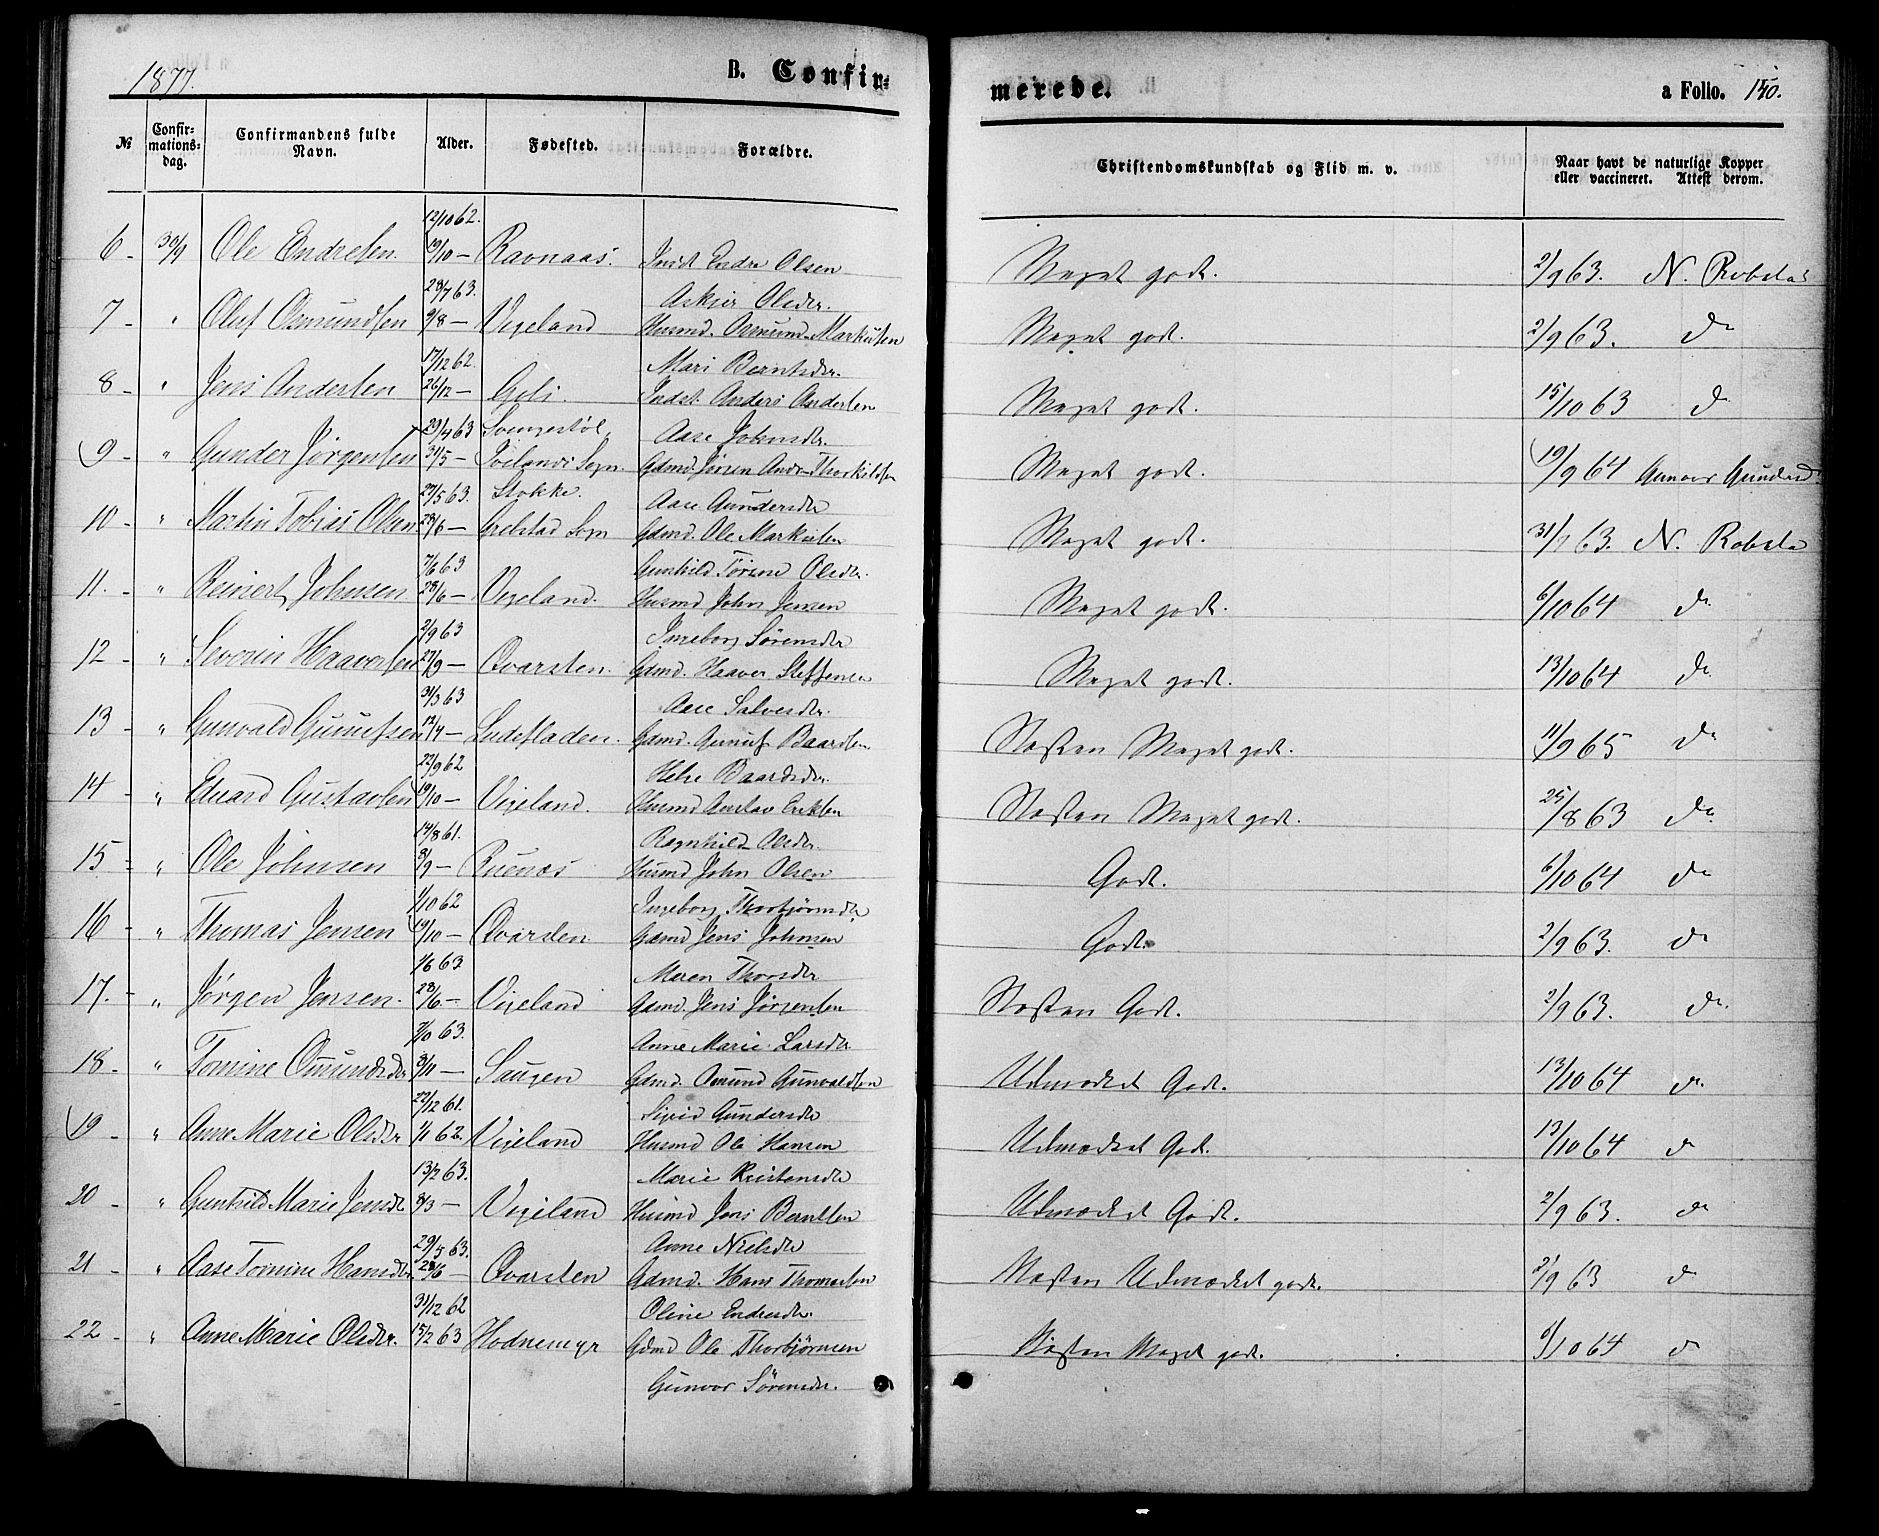 1877.
B. Confir-
merede.
a Folio. 140.
№
Confir-mations-dag.
Confirmandens fulde Navn.
Alder.
Fødested.
Forældre.
Christendomskundskab og Flid m. v.
Naar havt de naturlige Kopper eller vaccineret. Attest derom.
12/10 62.
6 - 30/9 Ole Endresen. 19/10 - Ravnaas. Endre Olsen Meget godt. 2/9 63. N. Robsta
29/7 63. Oldsdr.
7 - " Oluf Osmundsen 9/8 - Vigeland Husmd. Osmund Markusen Meget godt. 2/9 63. do
17/12 62. Mari Berntsdr.
8 - " Jens Andersen 26/12 - Indst. Anders Andersen Meget godt. 15/10 63 do
29/4 63 Aase Johnsdr.
9 - " Gunder Jørgensen 31/5 - Sogn. Gdmd. Thorkildsen Meget godt. 19/9 64
27/5 63. Stokke. Aase Gundersdr
10 - " Martin Tobias Olsen 28/6 - Sogn Gdmd. Ole Markusen Meget godt. N. Robsta
7/6 63 Gunhild Torine Olsdr.
11. - " Reinert Johnsen 28/6 - Vigeland. Husmd John Jensen Meget godt. 6/10 64 do
2/9 63 Ingeborg Sørensdr
12 - " Severin Haaversen 27/9 - Qvarsten. Gdmd. Haaver Steffensen Meget godt. 13/10 64 do
31/3 63 Aase Salvesdr.
13 - " Gunvald Gunufsen 12/4 - Lindefladen. Gdmd. Gunuf Baardsen Næsten Meget godt. 11/9 65 do
22/9 62 Helje Baardsdr.
14 - " Eduard Gustavsen 19/10 - Vigeland. Husmd Gustav Eriksen Næsten Meget godt. 25/8 63 do
14/8 61. Ragnhild Olsdr.
15 - " Ole Johnsen 8/9 - Husmd John Olsen Godt. 6/10 64 do
1/10 62 Ingeborg Thorbjørnsdr
16 - " Thomas Jensen 19/10 - Qvarsten Gdmd Jens Johnsen Godt. 2/9 63. do
1/6 63. Maren Thorsdr
17. - " Jørgen Jensen. 28/6 - Vigeland Gdmd. Jens Jørgensen Næsten Godt. 2/9 63. do.
7/10 63. Anne Marie Larsdr
18 - " Tomine Osmundsdr 8/11 - Gdmd. Osmund Gunvaldsen Udmærket Godt. 13/10 64 do.
22/12 61. Sigrid Gundersdr
19 - " Anne Marie Olsdr 1/1 62. Vigeland Husmd Ole Hansen Udmærket Godt. 13/10 64 do
13/2 63. Marie Kristensdr
20 - " Gunhild Marie Jensdr 8/3 - Vigeland Husmd Jens Berntsen Udmærket Godt. 2/9 63. do
29/5 63. Anne Nielsdr
21 - " Aase Tomine Hansdtr. 28/6 - Qvarsten Gdmd. Hans Thomasen Næsten Udmærket godt. 2/9 63 do
31/12 62 Oline Endresdr.
22 - " Anne Marie Olsdr. 15/2 63 Hodnemyr Gdmd Ole Thorbjørnsen Næsten Meget godt. 6/10 64 do
Gunvor Sørensdr.